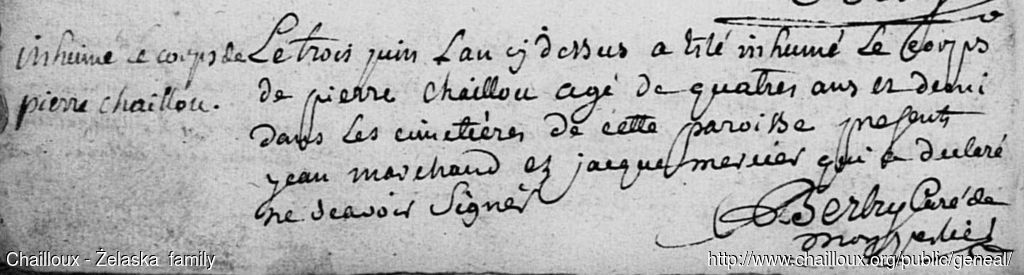 inhume le corps de
pierre chaillou.
Le trois juin Lan cy dessus a Esté inhumé Le Corps
de pierre Chaillou agé de quatres ans et demi
dans les cimetiéres de cette paroisse presents
jean marchand et jacque mercier qui a declaré
ne scavoir Signer
Berbry Curé de
Chailloux - Želaska family
http://www.chailloux.org/public/geneal/